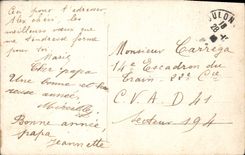 en pour t'adresser
mon cher, les
meilleurs vœux que
ma tendresse forme
pour toi.
Marie
Cher papa
Une bonne et heu
reuse année,
Marcelle
Bonne année,
papa
Jeannette
TOULON
Monsieur Carréga
14e Escadron du
Train - 22e Cie
C.V.A.D 41
Secteur 194